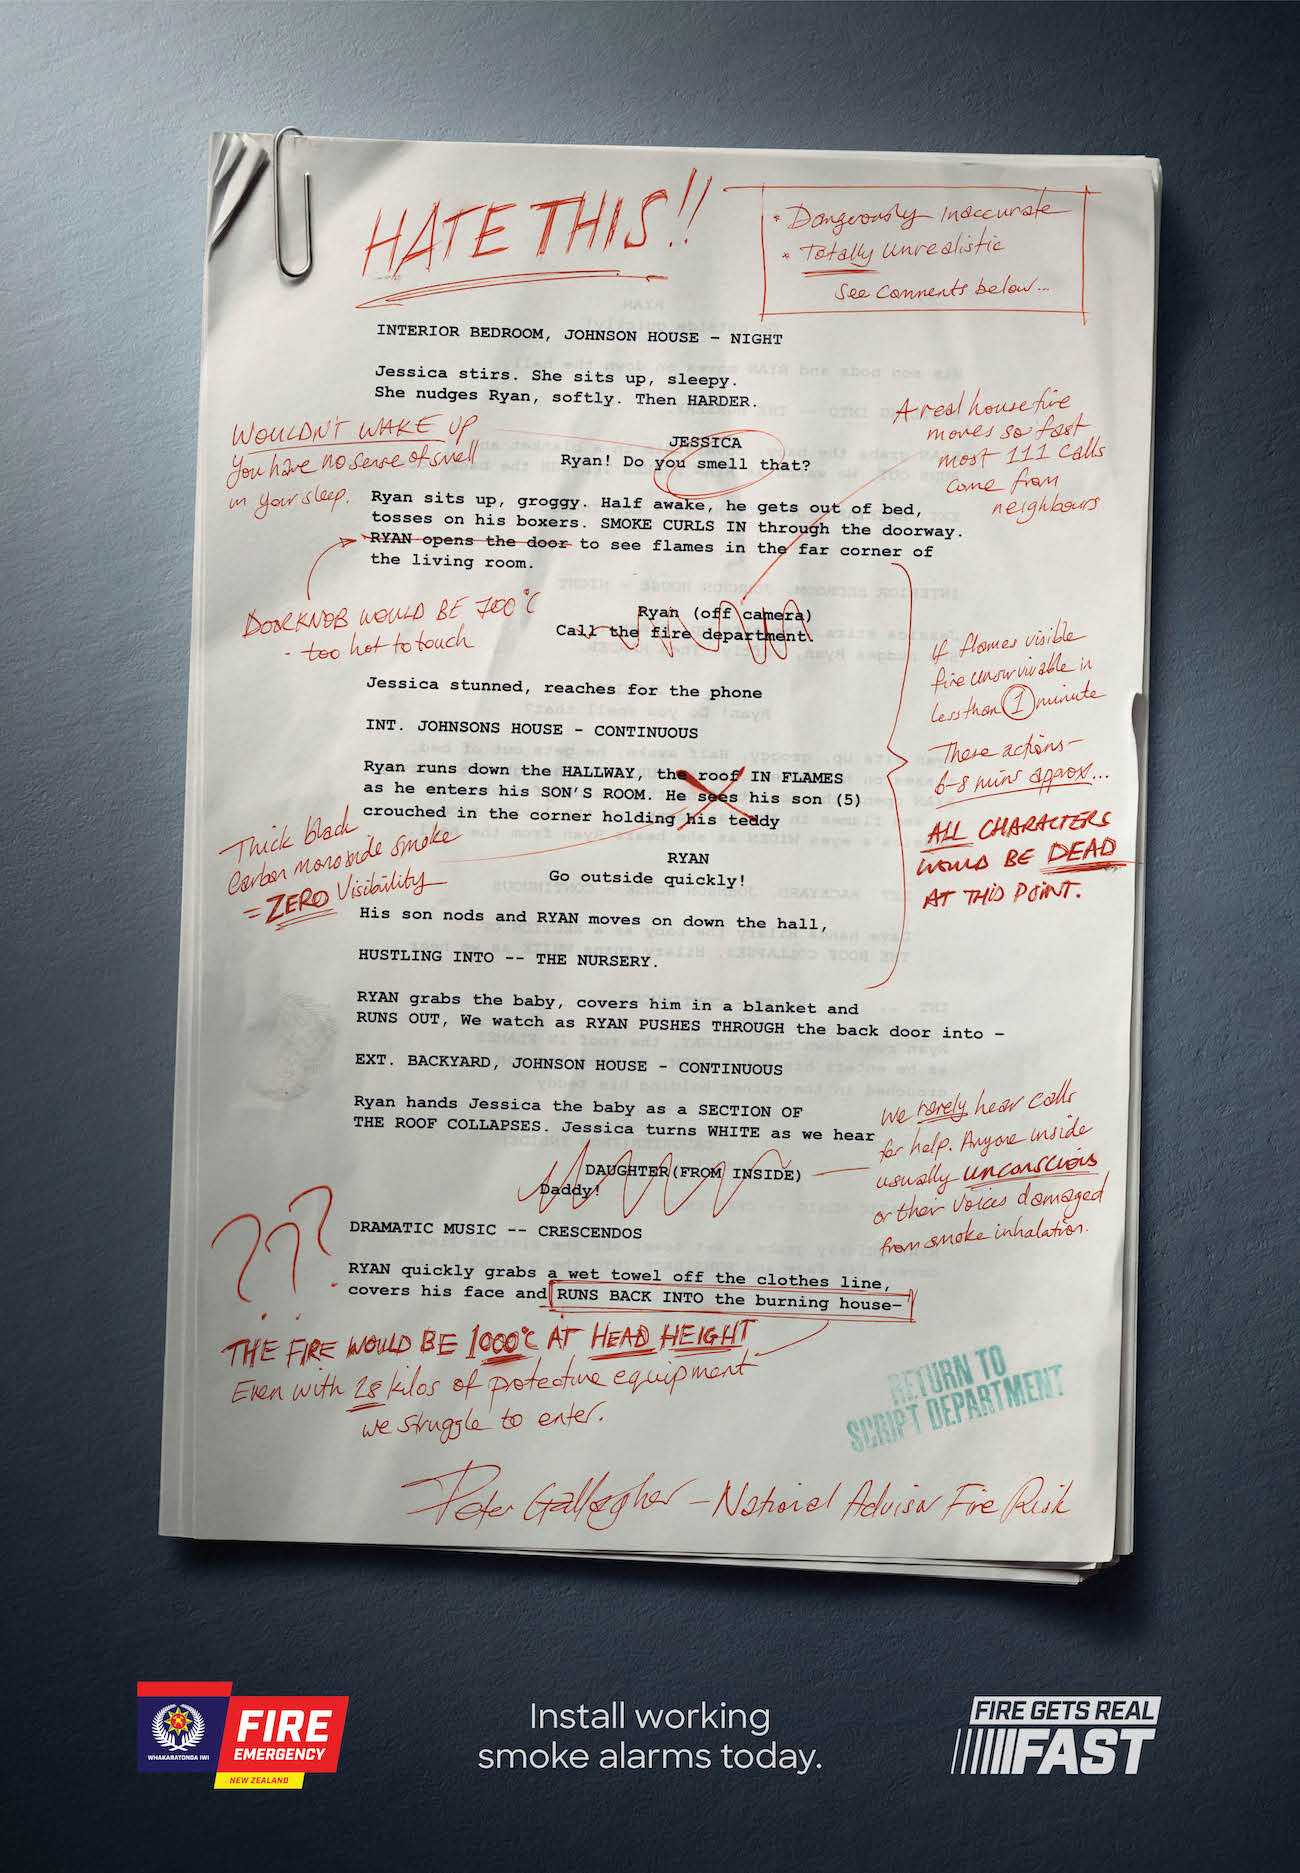 HATE THIS!!
* Dangerously Inaccurate
* Totally Unrealistic
See comments below...
INTERIOR BEDROOM, JOHNSON HOUSE – NIGHT
Jessica stirs. She sits up, sleepy.
She nudges Ryan, softly. Then HARDER.
A real house fire
moves so fast
most 111 calls
come from
neighbours
WOULDN'T WAKE UP
you have no sense of smell
in your sleep.
JESSICA
Ryan! Do you smell that?
Ryan sits up, groggy. Half awake, he gets out of bed,
tosses on his boxers. SMOKE CURLS IN through the doorway.
RYAN opens the door to see flames in the far corner of
the living room.
DOORKNOB WOULD BE 700°C
- too hot to touch
Ryan (off camera)
Call the fire department.
If flames visible
fire unsurvivable in
less than 1 minute
These actions –
6-8 mins approx...
ALL CHARACTERS
WOULD BE DEAD
AT THIS POINT.
Jessica stunned, reaches for the phone
INT. JOHNSONS HOUSE - CONTINUOUS
Ryan runs down the HALLWAY, the roof IN FLAMES
as he enters his SON'S ROOM. He sees his son (5)
crouched in the corner holding his teddy
Thick black
carbon monoxide smoke
= ZERO Visibility
RYAN
Go outside quickly!
His son nods and RYAN moves on down the hall,
HUSTLING INTO -- THE NURSERY.
RYAN grabs the baby, covers him in a blanket and
RUNS OUT, We watch as RYAN PUSHES THROUGH the back door into –
EXT. BACKYARD, JOHNSON HOUSE - CONTINUOUS
Ryan hands Jessica the baby as a SECTION OF
THE ROOF COLLAPSES. Jessica turns WHITE as we hear
We rarely hear calls
for help. Anyone inside
usually unconscious
or their voices damaged
from smoke inhalation.
DAUGHTER(FROM INSIDE)
Daddy!
DRAMATIC MUSIC -- CRESCENDOS
???
RYAN quickly grabs a wet towel off the clothes line,
covers his face and RUNS BACK INTO the burning house–
THE FIRE WOULD BE 1000°C AT HEAD HEIGHT
Even with 28 kilos of protective equipment
we struggle to enter.
RETURN TO
SCRIPT DEPARTMENT
Peter Gallagher – National Advisor Fire Risk
WHAKARATONGA IWI
FIRE
EMERGENCY
NEW ZEALAND
Install working
smoke alarms today.
FIRE GETS REAL
FAST